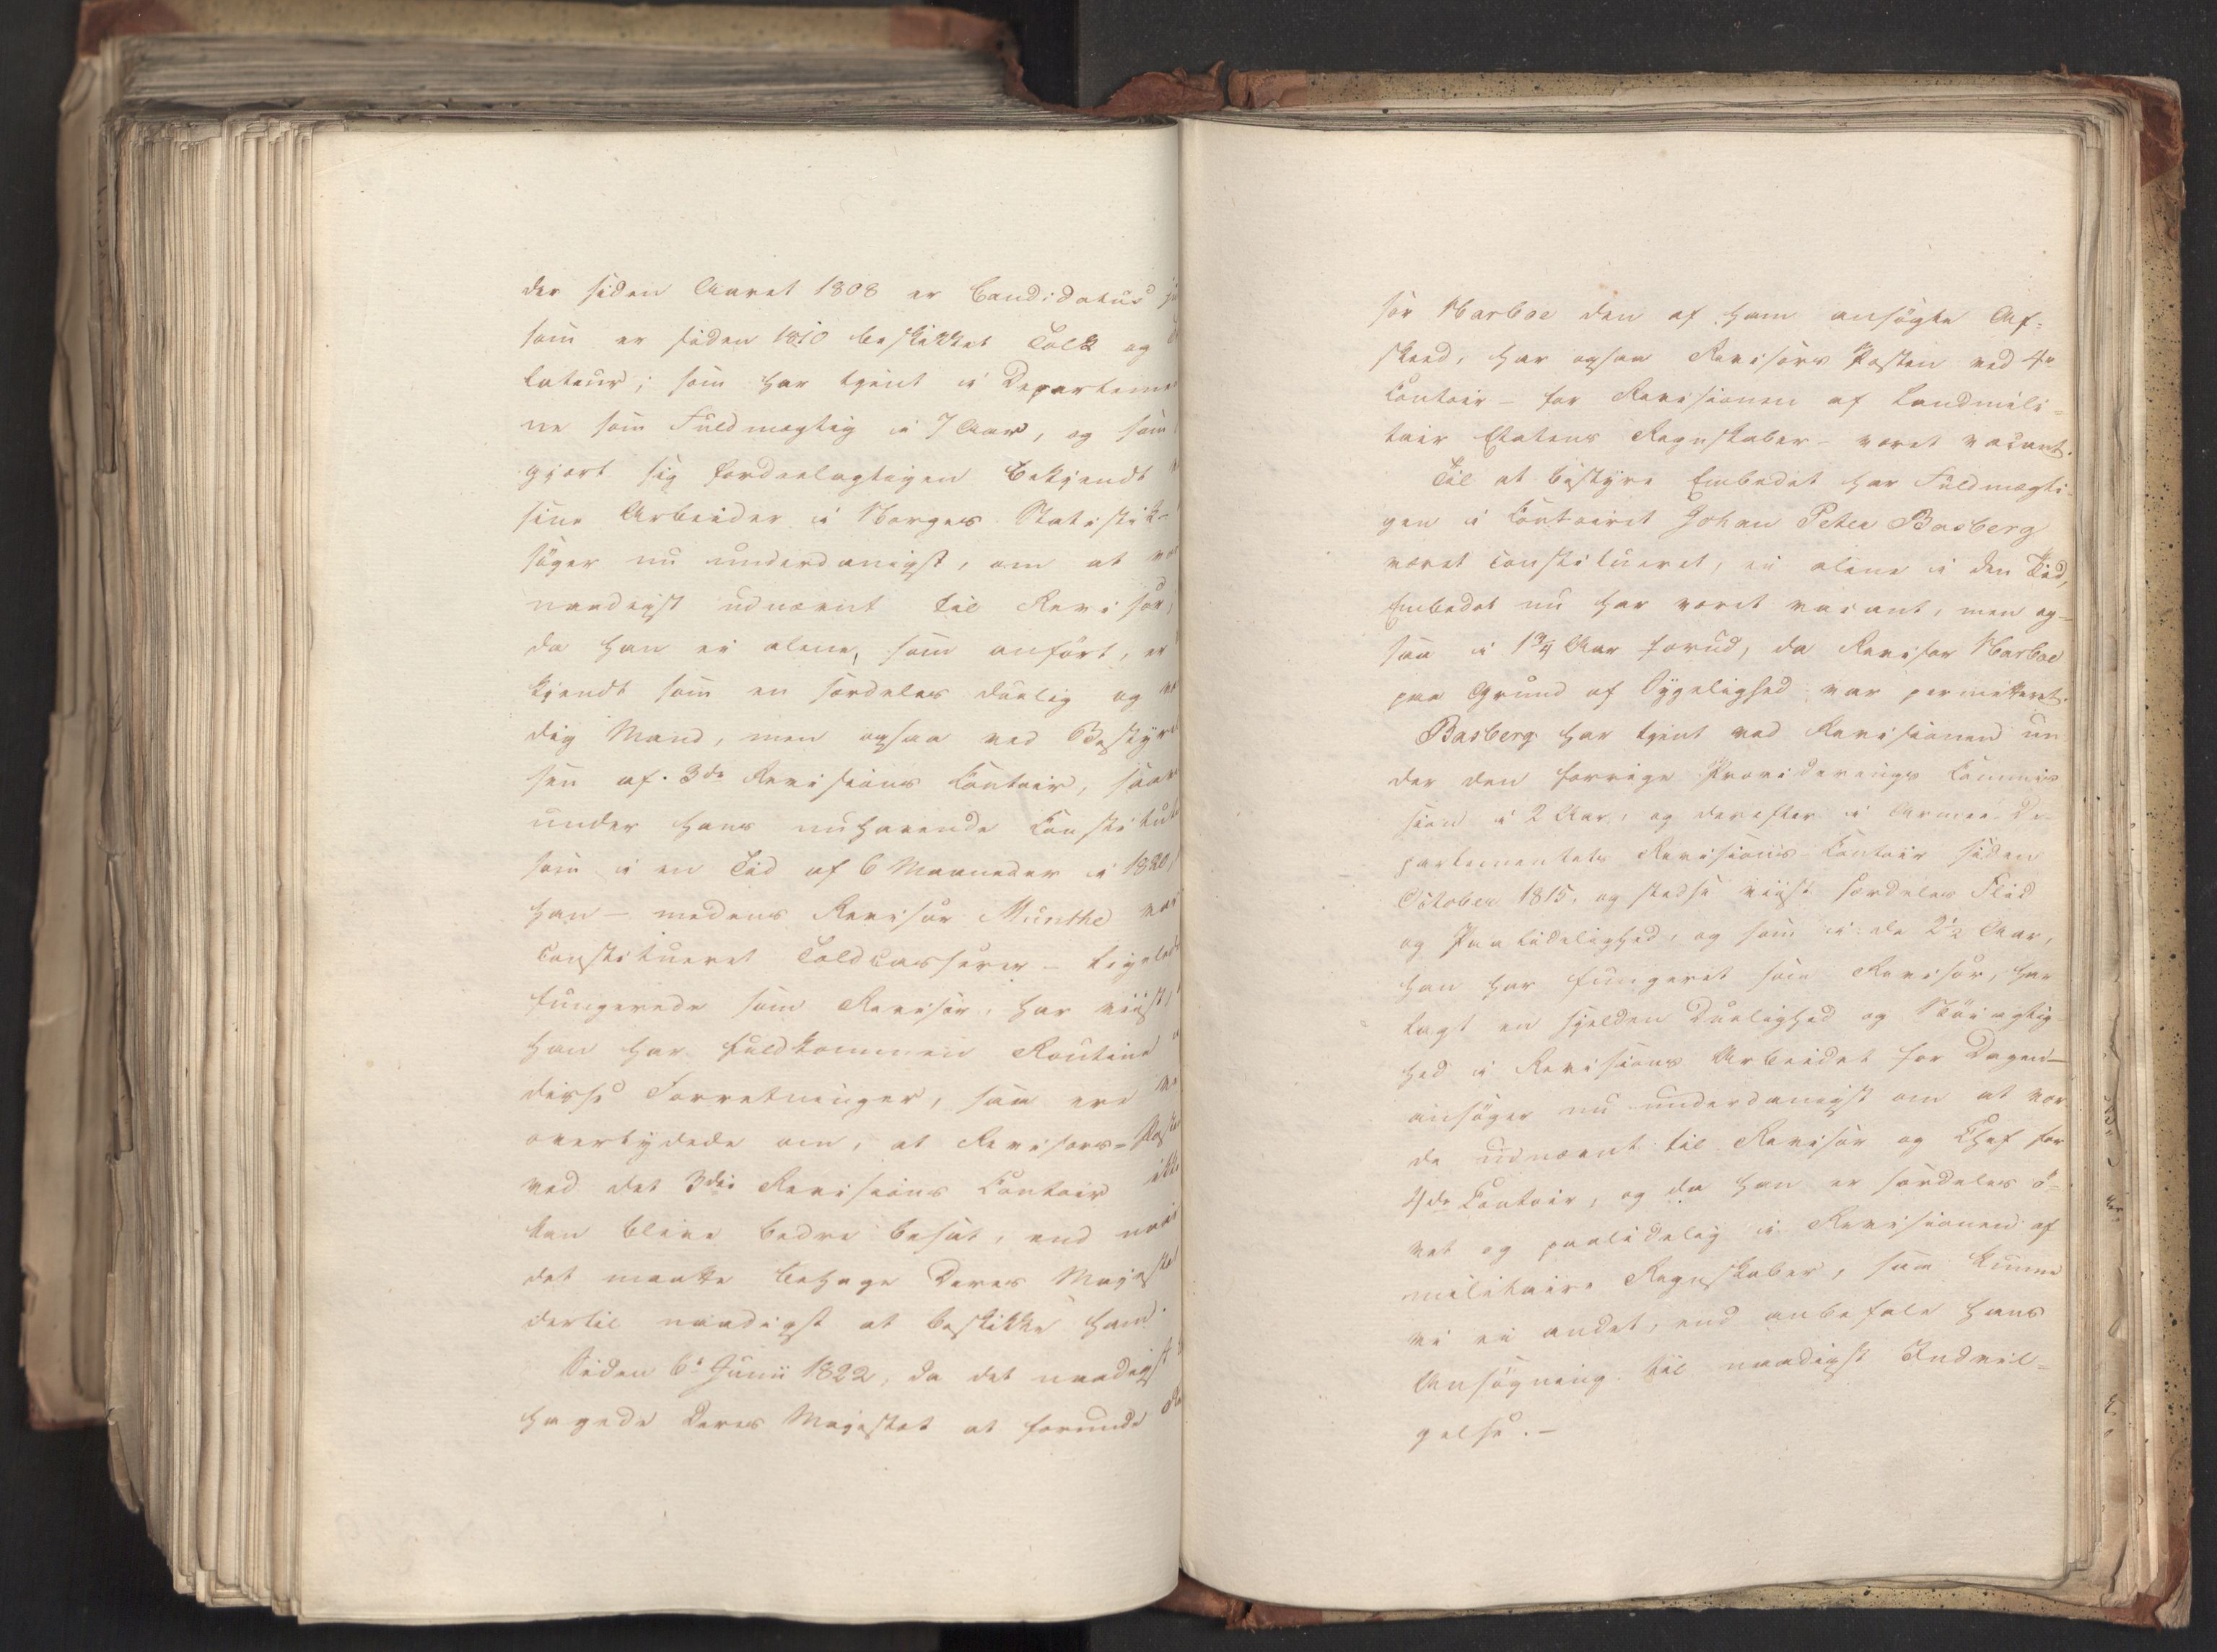 der siden Aaret 1808 er Candidatus
som er siden 1810 beskikket Tolk og
lateur; som har tjent i Departeme
ne som Fuldmægtig i 7 Aar, og som
gjort sig fordeelagtigen bekjendt
sine Arbeider i Norges Statistik-
søger nu underdanigst, om at
naadigst udnævnt til Revisor;
da han ei alene, som anført, er
kjendt som en særdeles duelig og
dig Mand, men ogsaa ved Bestyre
sen af 3de Revisions Contoir, saav
under hans nuhavende Constitut
som i en Tid af 6 Maaneder i 1820,
han – medens Revisor Munthe var
Constitueret Toldcasserer – ligeled
fungerede som Revisor, har viist,
han har fuldkommen Routine
disse Forretninger, saa ere
overtydede om, at Revisors-Post
ved det 3die Revisions Contoir ikke
kan blive bedre besat, end naar
det maatte behage Deres Majestæt
dertil naadigst at beskikke ham.
Siden 6te Junii 1822, da det naadigst
hagede Deres Majestæt at forunde
sor Narboe den af ham ansøgte Af=
skeed, har ogsaa Revisors Posten ved 4de
Contoir – for Revisionen af Landmili=
tair Etatens Regnskaber – været vacant.
Til at bestyre Embedet har Fuldmægti-
gen i Contoiret Johan Peter Basberg
været constitueret, ei alene i den Tid,
Embedet nu har været vacant, men og=
saa i 1¾ Aar forud, da Revisor Narboe
paa Grund af Sygelighed var permitteret.
Basberg har tjent ved Revisionen un
der den forrige Provideerings Commis
sion i 2 Aar, og derefter i Armee-De-
partementets Revisions Contoir siden
October 1815, og stedse viist særdeles Flid
og Paalidelighed, og som i de 2½ Aar,
han har fungeret som Revisor, har
lagt en sjelden Duelighed og Nøiagtig-
hed i Revisions Arbeidet for Dagen–
ansøger nu underdanigst om at vor
de udnævnt til Revisor og Chef for
4de Contoir, og da han er særdeles ø=
vet og paalidelig i Revisionen af
militaire Regnskaber, saa kunne
vi ei andet, end anbefale hans
Ansøgning til naadigst Indvil=
gelse.–